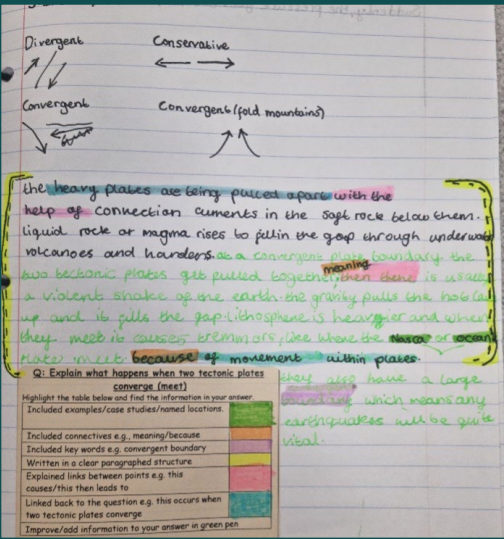 Divergent
Conservative
Convergent
Convergent (fold mountains)
the heavy plates are being pulled apart with the
help of connection currents in the soft rock below them.
liquid rock or magma rises to fill in the gap through underwater
volcanoes and hardens. at a convergent plate boundary the
meaning
two tectonic plates get pulled together, then there is usually
a violent shake of the earth. the gravity pulls the
up and it fills the gap. lithosphere is heavier and when
they meet it causes tremmors, like where the Nasca or ocean
plate meet because of movement within plates.
they also have a large
boundary which means any
earthquakes will be quite
vital.
Q: Explain what happens when two tectonic plates
converge (meet)
Highlight the table below and find the information in your answer.
Included examples/case studies/named locations.
Included connectives e.g., meaning/because
Included key words e.g. convergent boundary
Written in a clear paragraphed structure
Explained links between points e.g. this
causes/this then leads to
Linked back to the question e.g. this occurs when
two tectonic plates converge
Improve/add information to your answer in green pen